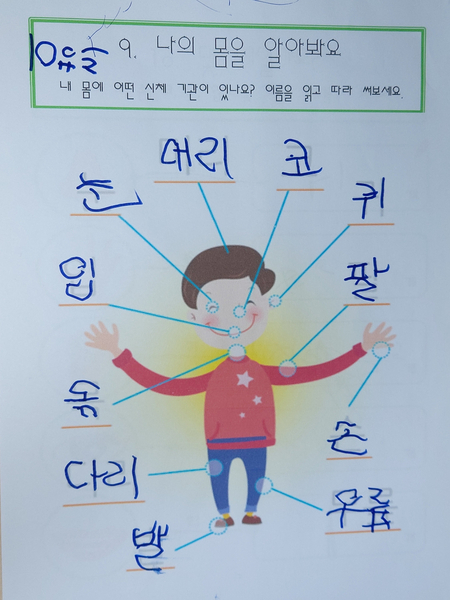 9. 나의 몸을 알아봐요
내 몸에 어떤 신체 기관이 있나요? 이름을 읽고 따라 써보세요.
머리
코
눈
귀
입
팔
목
손
다리
무릎
발